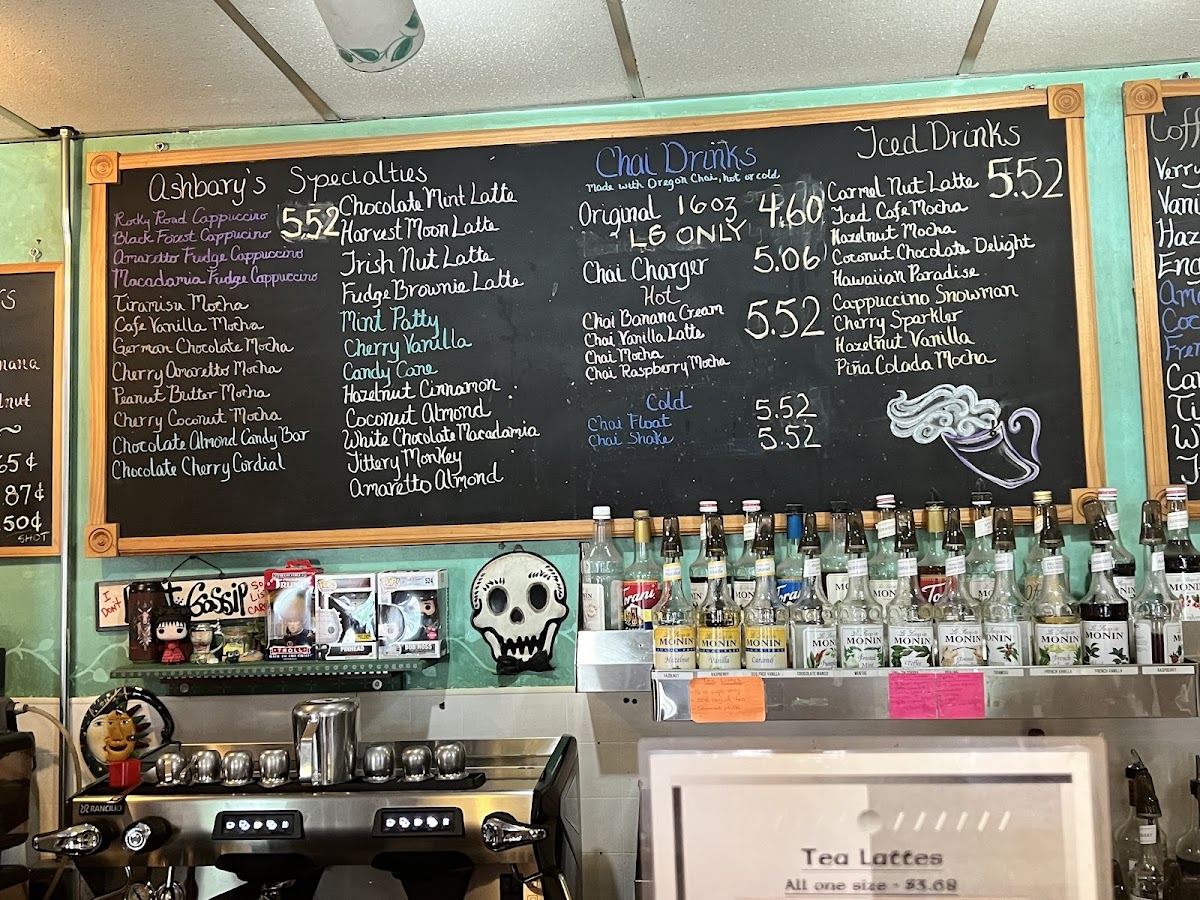 Ashbary's Specialties
Rocky Road Cappuccino 5.52
Black Forest Cappucino
Amaretto Fudge Cappuccino
Macadamia Fudge Cappuccino
Tiramisu Mocha
Cafe Vanilla Mocha
German Chocolate Mocha
Cherry Amaretto Mocha
Peanut Butter Mocha
Cherry Coconut Mocha
Chocolate Almond Candy Bar
Chocolate Cherry Cordial
Chocolate Mint Latte
Harvest Moon Latte
Irish Nut Latte
Fudge Brownie Latte
Mint Patty
Cherry Vanilla
Candy Cane
Hazelnut Cinnamon
Coconut Almond
White Chocolate Macadamia
Jittery Monkey
Amaretto Almond
Chai Drinks
Made with Oregon Chai, hot or cold
Original 16oz 4.60
LG ONLY
Chai Charger 5.06
Hot
Chai Banana Cream
Chai Vanilla Latte 5.52
Chai Mocha
Chai Raspberry Mocha
Cold
Chai Float 5.52
Chai Shake 5.52
Iced Drinks
Carmel Nut Latte 5.52
Iced Cafe Mocha
Hazelnut Mocha
Coconut Chocolate Delight
Hawaiian Paradise
Cappuccino Snowman
Cherry Sparkler
Hazelnut Vanilla
Piña Colada Mocha
65¢
87¢
50¢
SHOT
I DON'T
Gossip
TRUMP
TROLL
PINHEAD
524
BOB ROSS
Torani
MONIN
MONIN
MONIN
MONIN
MONIN
MONIN
MONIN
MONIN
MONIN
MONIN
Hazelnut
Vanilla
Caramel
RANCILIO
Tea Lattes
All one size - $3.68